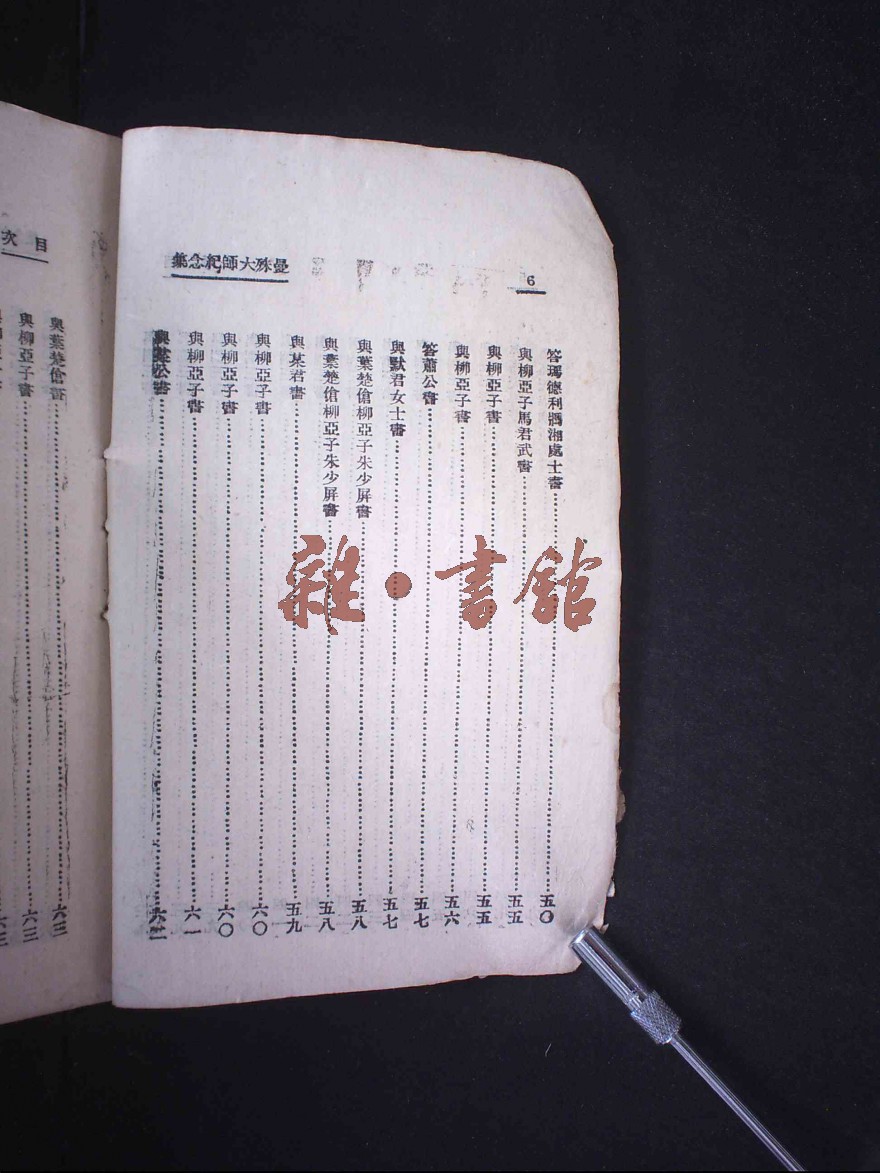 6
曼殊大師紀念集
答瑪德利鵾湘處士書 五〇
與柳亞子馬君武書 五五
與柳亞子書 五五
與柳亞子書 五六
答蕭公書 五七
與默君女士書 五七
與葉楚傖柳亞子朱少屏書 五八
與葉楚傖柳亞子朱少屏書 五八
與某君書 五九
與柳亞子書 六〇
與柳亞子書 六〇
與柳亞子書 六一
書
目次
與葉楚傖書 六三
與柳亞子書 六三
雜·書館